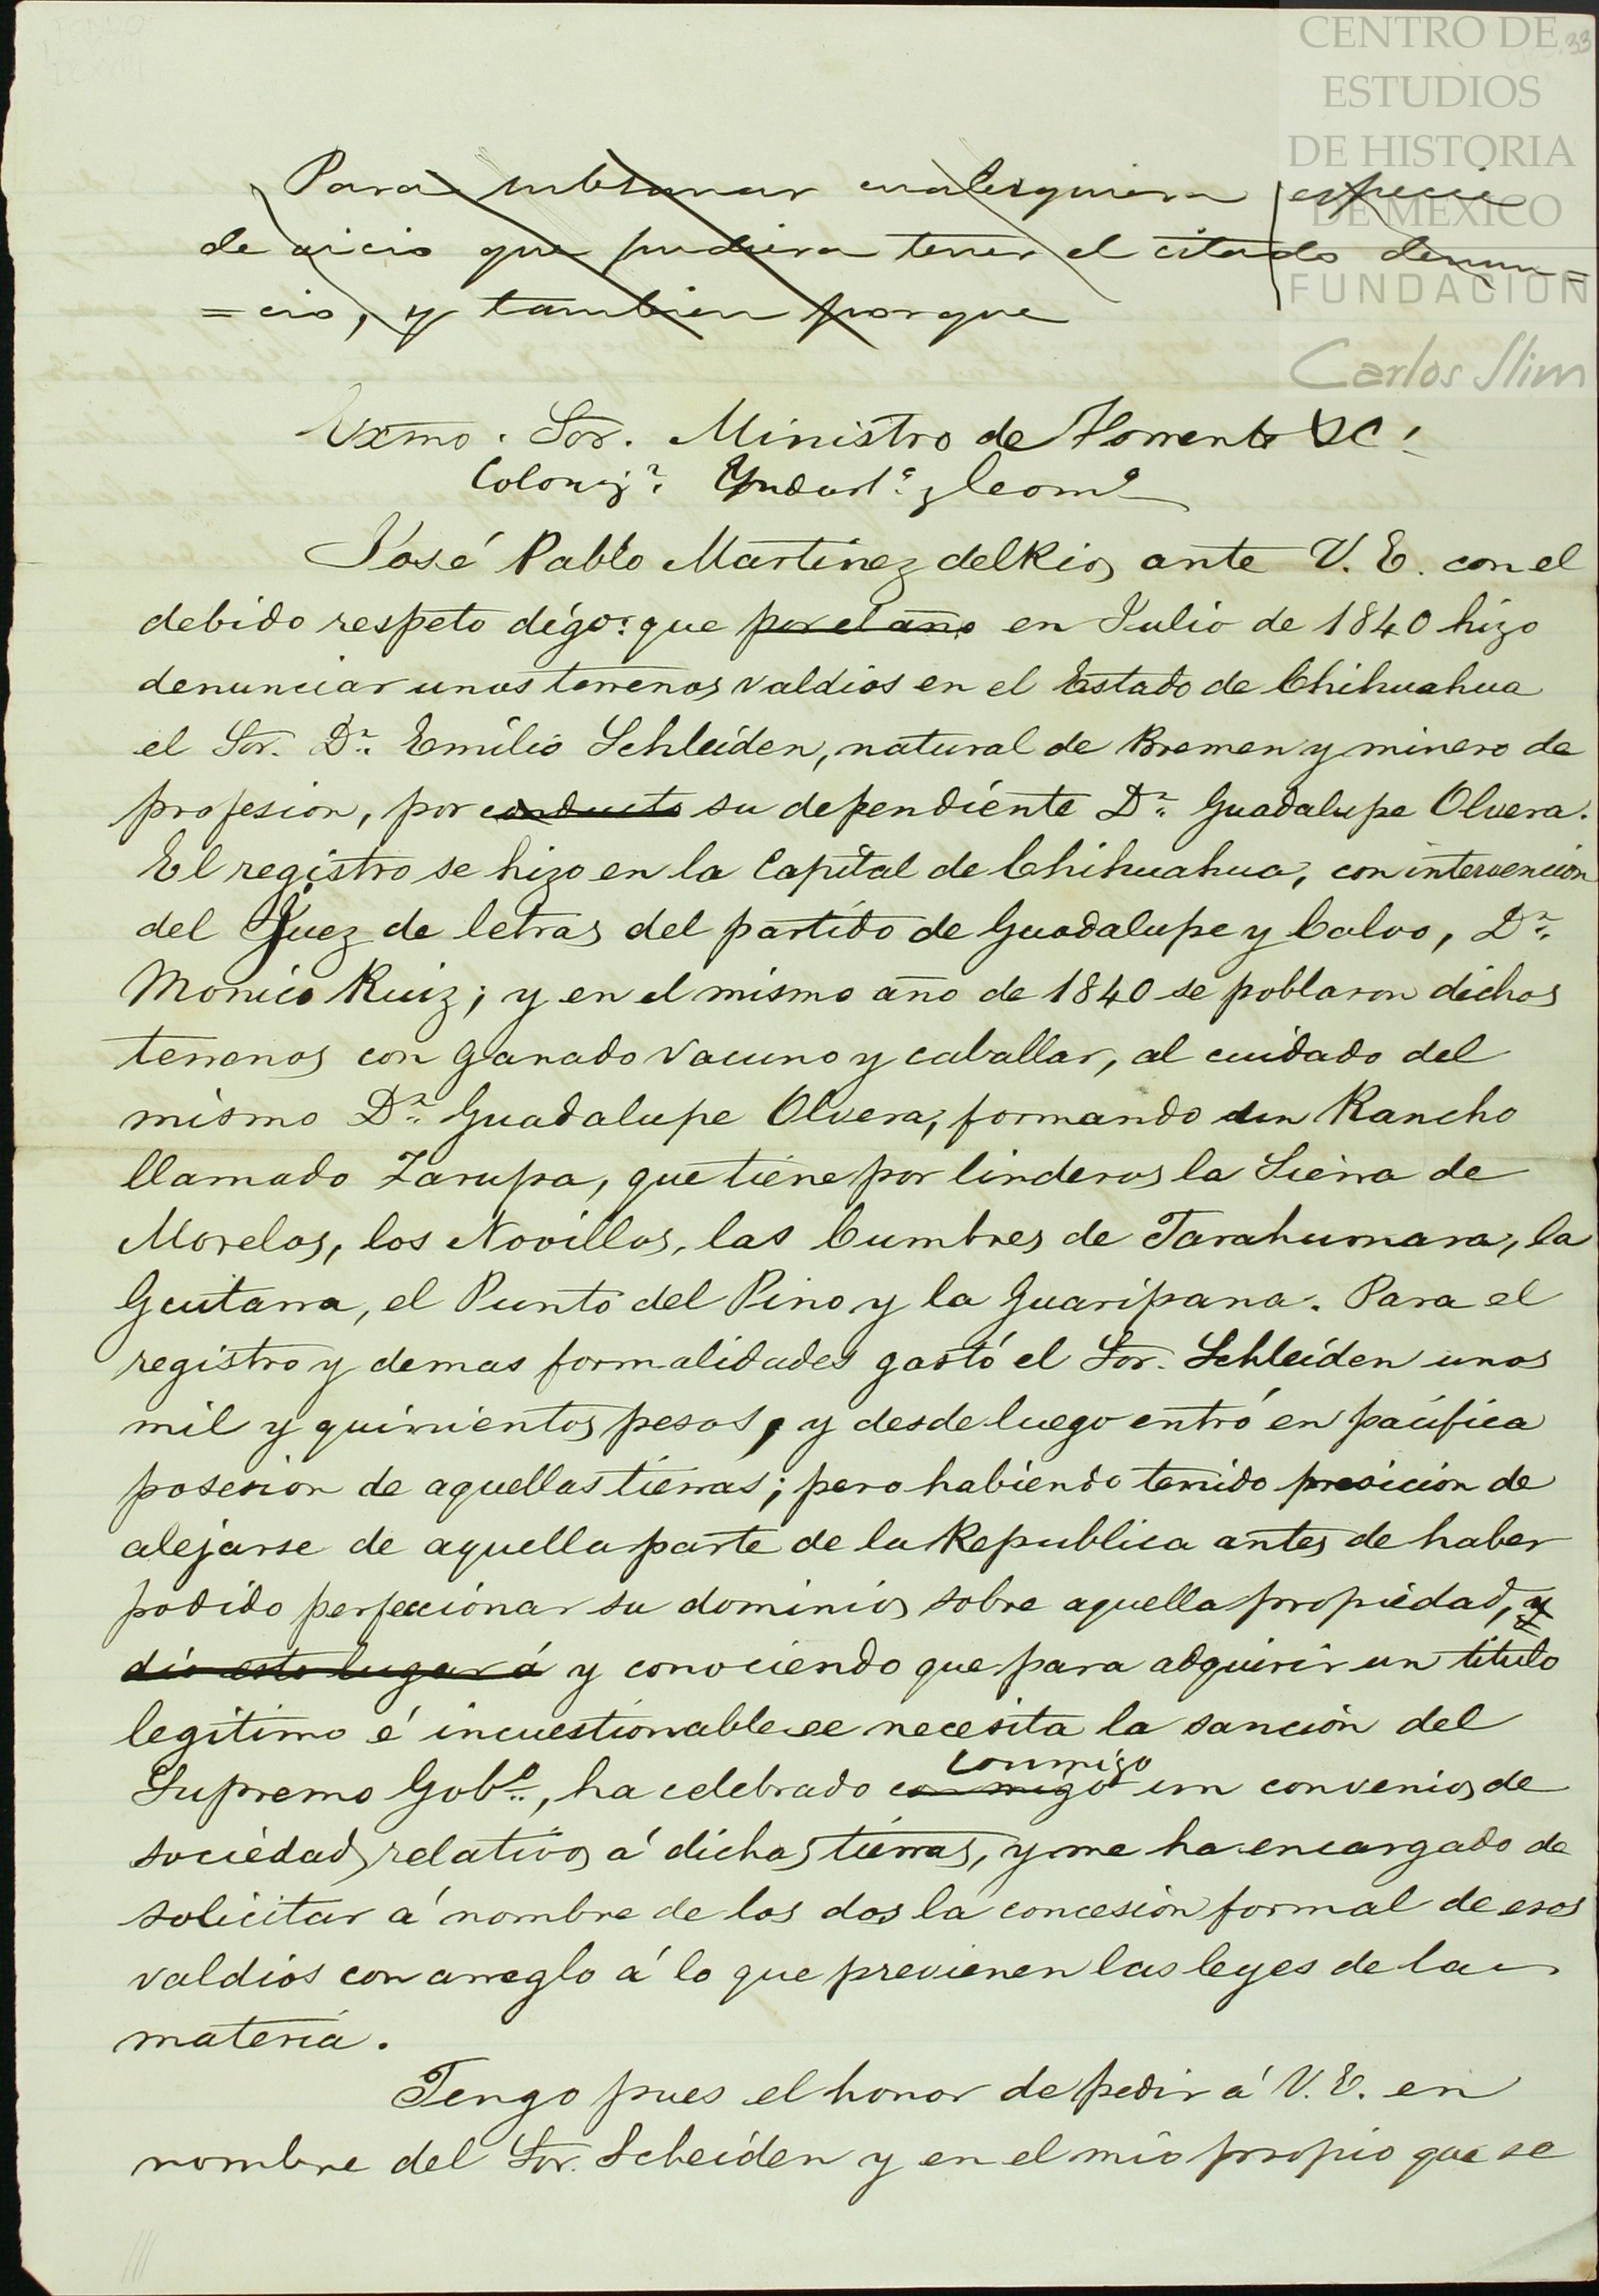 CENTRO DE
ESTUDIOS
DE HISTORIA
DE MÉXICO
FUNDACIÓN
Carlos Slim
33
Para subsanar cualesquiera especie
de vicio que pudiera tener el citado denun=
=cio, y tambien porque
Exmo. Sor. Ministro de Fomento &c.
Coloniz.n Yndust.a y Com.o
José Pablo Martinez del Rio, ante V. E. con el
debido respeto digo: que por el año en Julio de 1840 hizo
denunciar unos terrenos valdios en el Estado de Chihuahua
el Sor. Dn. Emilio Schleiden, natural de Bremen y minero de
profesion, por conducto su dependiente Dn. Guadalupe Olvera.
El registro se hizo en la Capital de Chihuahua, con intervencion
del Juez de letras del partido de Guadalupe y Calvo, Dn.
Monico Ruiz; y en el mismo año de 1840 se poblaron dichos
terrenos con ganado vacuno y caballar, al cuidado del
mismo Dn. Guadalupe Olvera, formando un Rancho
llamado Zarupa, que tiene por linderos la Sierra de
Morelos, los Novillos, las Cumbres de Tarahumara, la
Guitarra, el Punto del Pino y la Guaripana. Para el
registro y demas formalidades gastó el Sor. Schleiden unos
mil y quinientos pesos, y desde luego entró en pacifica
posesion de aquellas tierras; pero habiendo tenido presicion de
alejarse de aquella parte de la Republica antes de haber
podido perfeccionar su dominio sobre aquella propiedad, y
dio esto lugar á y conociendo que para adquirir un titulo
legitimo é incuestionable se necesita la sancion del
Supremo Gobo., ha celebrado con migo conmigo un convenio de
sociedad relativo á dichas tierras, y me ha encargado de
solicitar á nombre de los dos la concesion formal de esos
valdios con arreglo á lo que previenen las leyes de la
materia.
Tengo pues el honor de pedir á V. E. en
nombre del Sor. Scheiden y en el mio propio que se